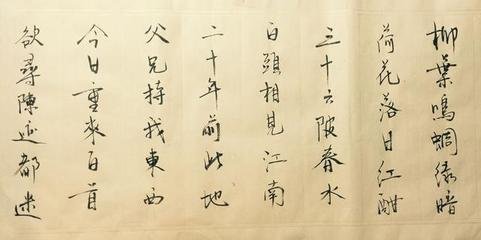 柳葉鳴蜩綠暗
荷花落日紅酣
三十六陂春水
白頭相見江南
二十年前此地
父兄持我東西
今日重來白首
欲尋陳迹都迷